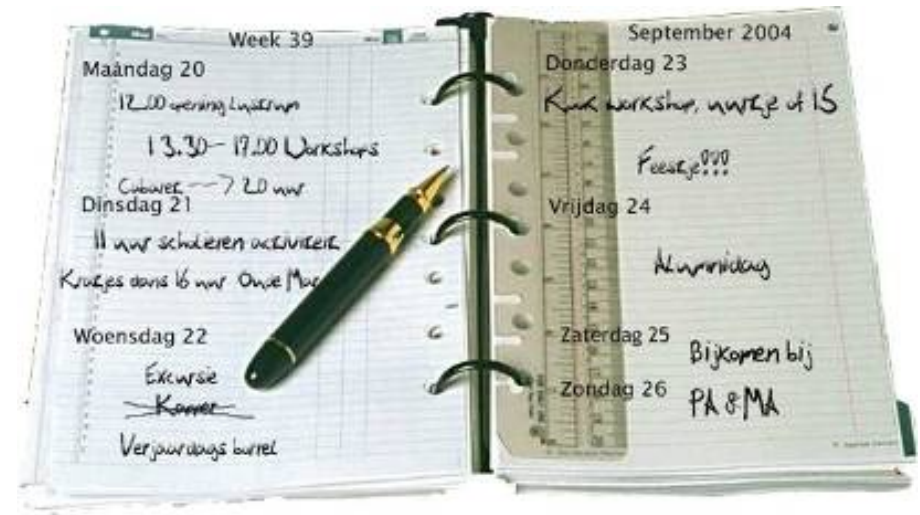 Week 39
Maandag 20
12.00 opening Lustrum
13.30 - 17.00 Workshops
Cabaret -> 20 uur
Dinsdag 21
11 uur scholieren activiteit
Krutjes dans 16 uur Oude
Woensdag 22
Excursie
Verjaardags borrel
September 2004
Donderdag 23
workshop, uurtje of 15
Feestje!!!
Vrijdag 24
Alumnidag
Zaterdag 25
Bijkomen bij
Zondag 26
PA & MA